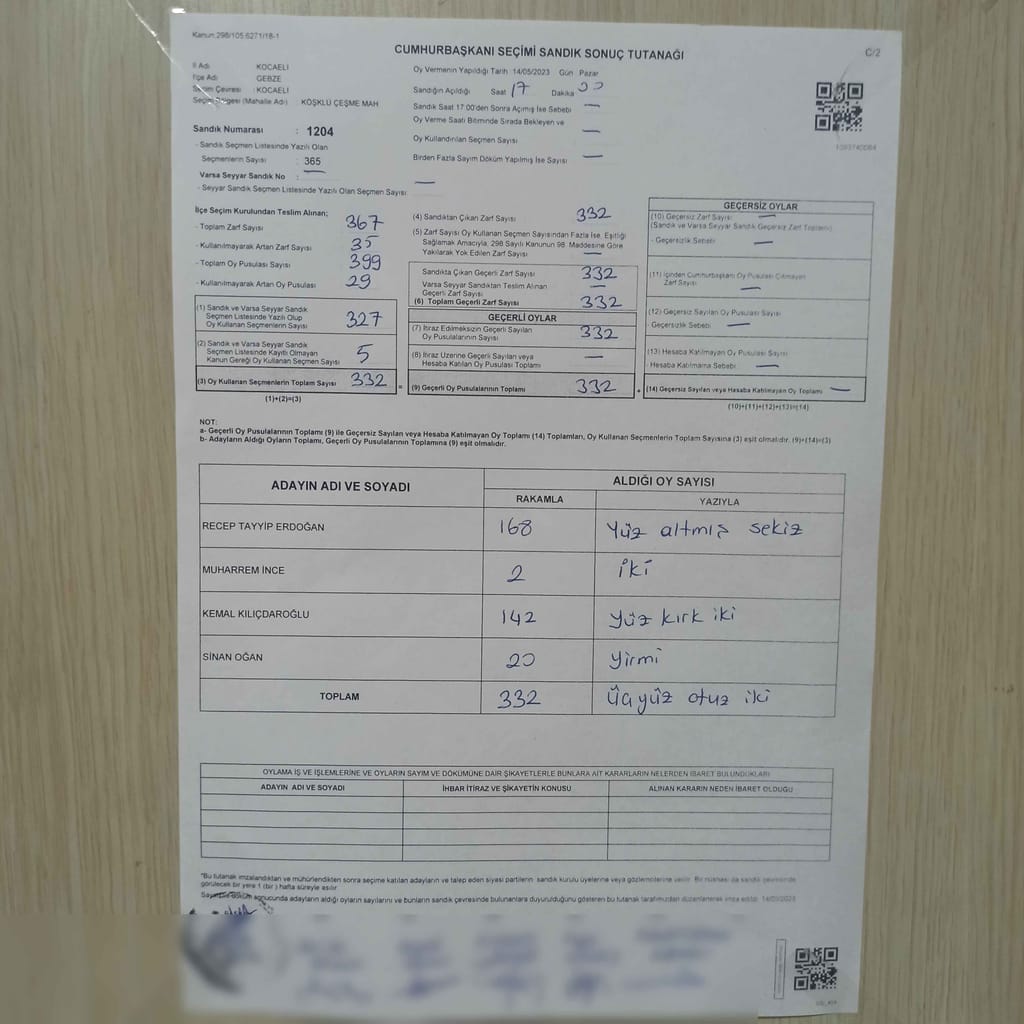 Kanun 298/105.6271/18-1
CUMHURBAŞKANI SEÇİMİ SANDIK SONUÇ TUTANAĞI
C/2
İl Adı : KOCAELİ
İlçe Adı : GEBZE
Seçim Çevresi : KOCAELİ
Seçim Bölgesi (Mahalle Adı) : KÖŞKLÜ ÇEŞME MAH
Sandık Numarası : 1204
- Sandık Seçmen Listesinde Yazılı Olan
Seçmenlerin Sayısı : 365
Varsa Seyyar Sandık No : —
- Seyyar Sandık Seçmen Listesinde Yazılı Olan Seçmen Sayısı : —
Oy Vermenin Yapıldığı Tarih 14/05/2023 Gün Pazar
Sandığın Açıldığı Saat 17 Dakika 00
Sandık Saat 17:00'den Sonra Açılmış İse Sebebi —
Oy Verme Saati Bitiminde Sırada Bekleyen ve
Oy Kullandırılan Seçmen Sayısı —
Birden Fazla Sayım Döküm Yapılmış İse Sayısı —
İlçe Seçim Kurulundan Teslim Alınan;
- Toplam Zarf Sayısı 367
- Kullanılmayarak Artan Zarf Sayısı 35
- Toplam Oy Pusulası Sayısı 399
- Kullanılmayarak Artan Oy Pusulası 29
(1) Sandık ve Varsa Seyyar Sandık
Seçmen Listesinde Yazılı Olup
Oy Kullanan Seçmenlerin Sayısı 327
(2) Sandık ve Varsa Seyyar Sandık
Seçmen Listesinde Kayıtlı Olmayan
Kanun Gereği Oy Kullanan Seçmen Sayısı 5
(3) Oy Kullanan Seçmenlerin Toplam Sayısı 332 =
(1)+(2)=(3)
(4) Sandıktan Çıkan Zarf Sayısı 332
(5) Zarf Sayısı Oy Kullanan Seçmen Sayısından Fazla İse, Eşitliği
Sağlamak Amacıyla, 298 Sayılı Kanunun 98. Maddesine Göre
Yakılarak Yok Edilen Zarf Sayısı —
Sandıkta Çıkan Geçerli Zarf Sayısı 332
Varsa Seyyar Sandıktan Teslim Alınan
Geçerli Zarf Sayısı —
(6) Toplam Geçerli Zarf Sayısı 332
GEÇERLİ OYLAR
(7) İtiraz Edilmeksizin Geçerli Sayılan
Oy Pusulalarının Sayısı 332
(8) İtiraz Üzerine Geçerli Sayılan veya
Hesaba Katılan Oy Pusulası Toplamı —
(9) Geçerli Oy Pusulalarının Toplamı 332 +
GEÇERSİZ OYLAR
(10) Geçersiz Zarf Sayısı —
(Sandık ve Varsa Seyyar Sandık Geçersiz Zarf Toplamı)
- Geçersizlik Sebebi —
(11) İçinden Cumhurbaşkanı Oy Pusulası Çıkmayan
Zarf Sayısı —
(12) Geçersiz Sayılan Oy Pusulası Sayısı
- Geçersizlik Sebebi —
(13) Hesaba Katılmayan Oy Pusulası Sayısı
Hesaba Katılmama Sebebi —
(14) Geçersiz Sayılan veya Hesaba Katılmayan Oy Toplamı —
(10)+(11)+(12)+(13)=(14)
NOT:
a- Geçerli Oy Pusulalarının Toplamı (9) ile Geçersiz Sayılan veya Hesaba Katılmayan Oy Toplamı (14) Toplamları, Oy Kullanan Seçmenlerin Toplam Sayısına (3) eşit olmalıdır. (9)+(14)=(3)
b- Adayların Aldığı Oyların Toplamı, Geçerli Oy Pusulalarının Toplamına (9) eşit olmalıdır.
ADAYIN ADI VE SOYADI ALDIĞI OY SAYISI
RAKAMLA YAZIYLA
RECEP TAYYİP ERDOĞAN 168 Yüz altmış sekiz
MUHARREM İNCE 2 iki
KEMAL KILIÇDAROĞLU 142 yüz kırk iki
SİNAN OĞAN 20 yirmi
TOPLAM 332 üçyüz otuz iki
OYLAMA İŞ VE İŞLEMLERİNE VE OYLARIN SAYIM VE DÖKÜMÜNE DAİR ŞİKAYETLERLE BUNLARA AİT KARARLARIN NELERDEN İBARET BULUNDUKLARI
ADAYIN ADI VE SOYADI İHBAR İTİRAZ VE ŞİKAYETİN KONUSU ALINAN KARARIN NEDEN İBARET OLDUĞU
"Bu tutanak imzalandıktan ve mühürlendikten sonra seçime katılan adayların ve talep eden siyasi partilerin sandık kurulu üyelerine veya gözlemcilerine verilir. Bir nüshası da sandık çevresinde
görülecek bir yere 1 (bir) hafta süreyle asılır.
Sayım ve döküm sonucunda adayların aldığı oyların sayılarını ve bunların sandık çevresinde bulunanlara duyurulduğunu gösteren bu tutanak tarafımızdan düzenlenerek imza edildi. 14/05/2023